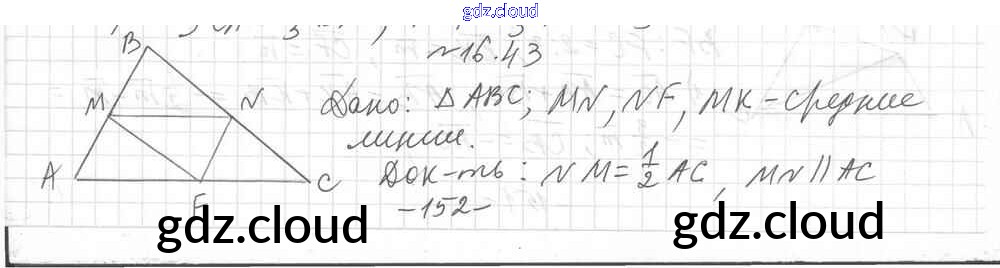 gdz.cloud
№16.43
B
M
N
A
C
F
Дано: ΔABC; MN, NF, MK - средние
линии.
Док-ть: NM = 1/2 AC, MN || AC
-152-
gdz.cloud
gdz.cloud